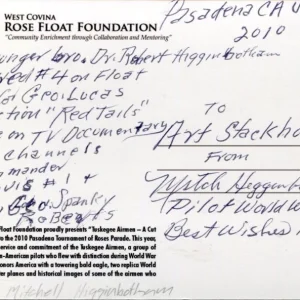 WEST COVINA
ROSE FLOAT FOUNDATION
"Community Enrichment through Collaboration and Mentoring"
Pasadena CA
2010
unger bro. Dr. Robert Higginbotham
red #4 on Float
Geo. Lucas
ction "Red Tails"
on TV Documentary
channels
mander
#1 +
Spanky
Roberts
TO
Art Stackho
From
Mitch Higginb
Pilot World W
Best Wishes
Float Foundation proudly presents "Tuskegee Airmen – A Cut
to the 2010 Pasadena Tournament of Roses Parade. This year,
service and commitment of the Tuskegee Airmen, a group of
n-American pilots who flew with distinction during World War
onors America with a towering bald eagle, two replica World
ter planes and historical images of some of the airmen who
Mitchell Higginbotham